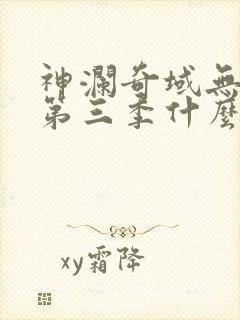 神瀾奇域無
第三季什麼
xy霜降